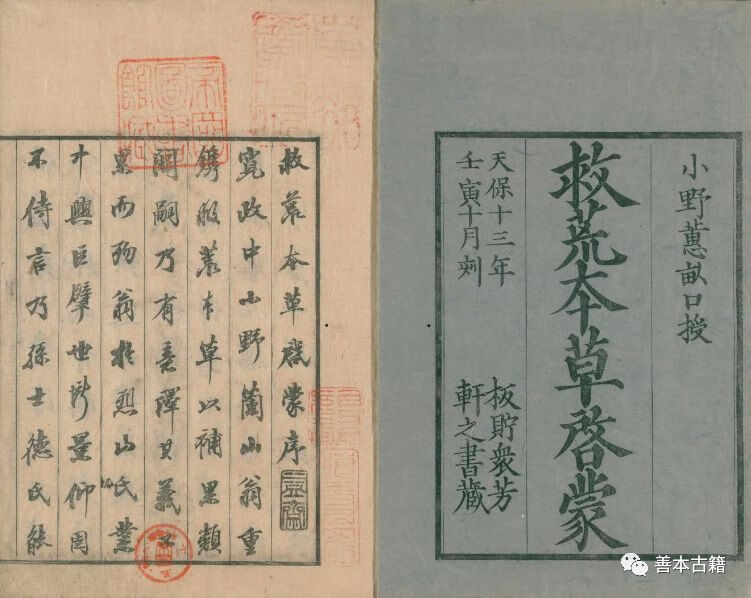 小野蕙畝口授
救荒本草啓蒙
天保十三年
壬寅十月刻
板貯衆芳
軒之書藏
救荒本草啓蒙序
寛政中小野蘭山翁重
鐫救荒本草以補果類
闕嗣乃有
義
果而歿翁於烈山氏業
中興巨擘世所景仰固
不待言乃孫士德氏能
善本古籍